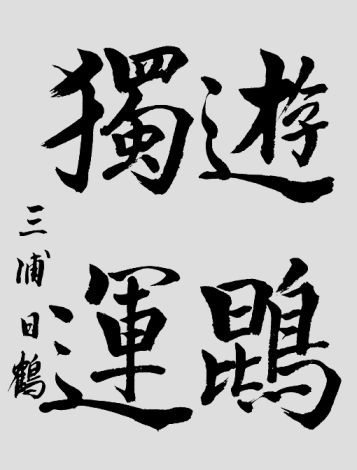 遊鵾
獨運
三浦日鶴